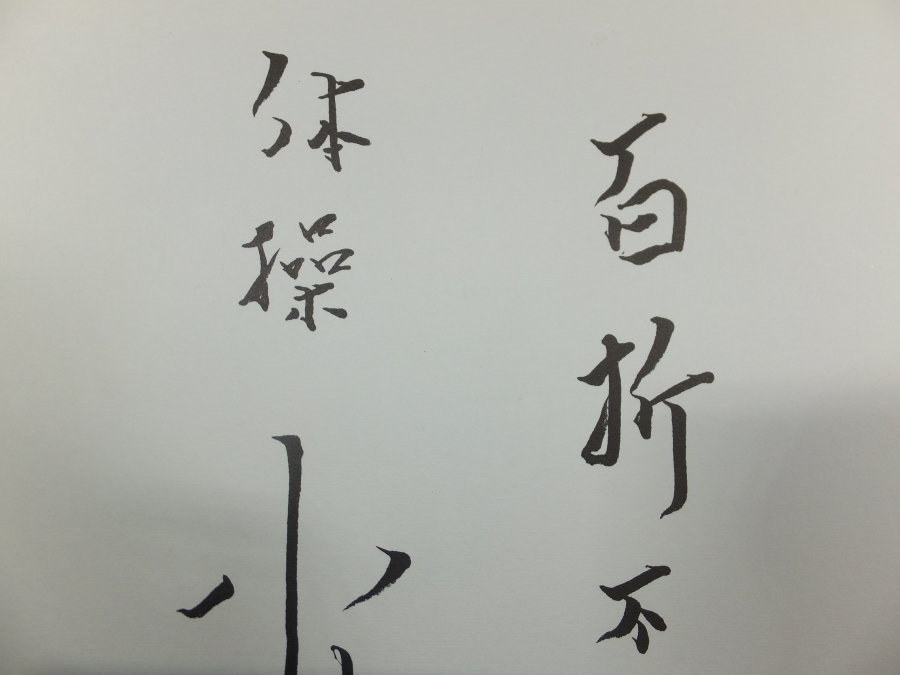 百折不
体操